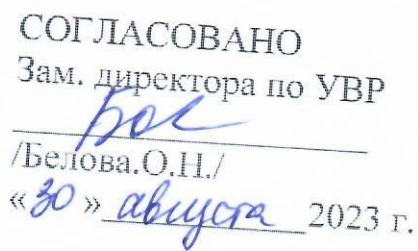 СОГЛАСОВАНО
Зам. директора по УВР
/Белова.О.Н./
«30» августа 2023 г.